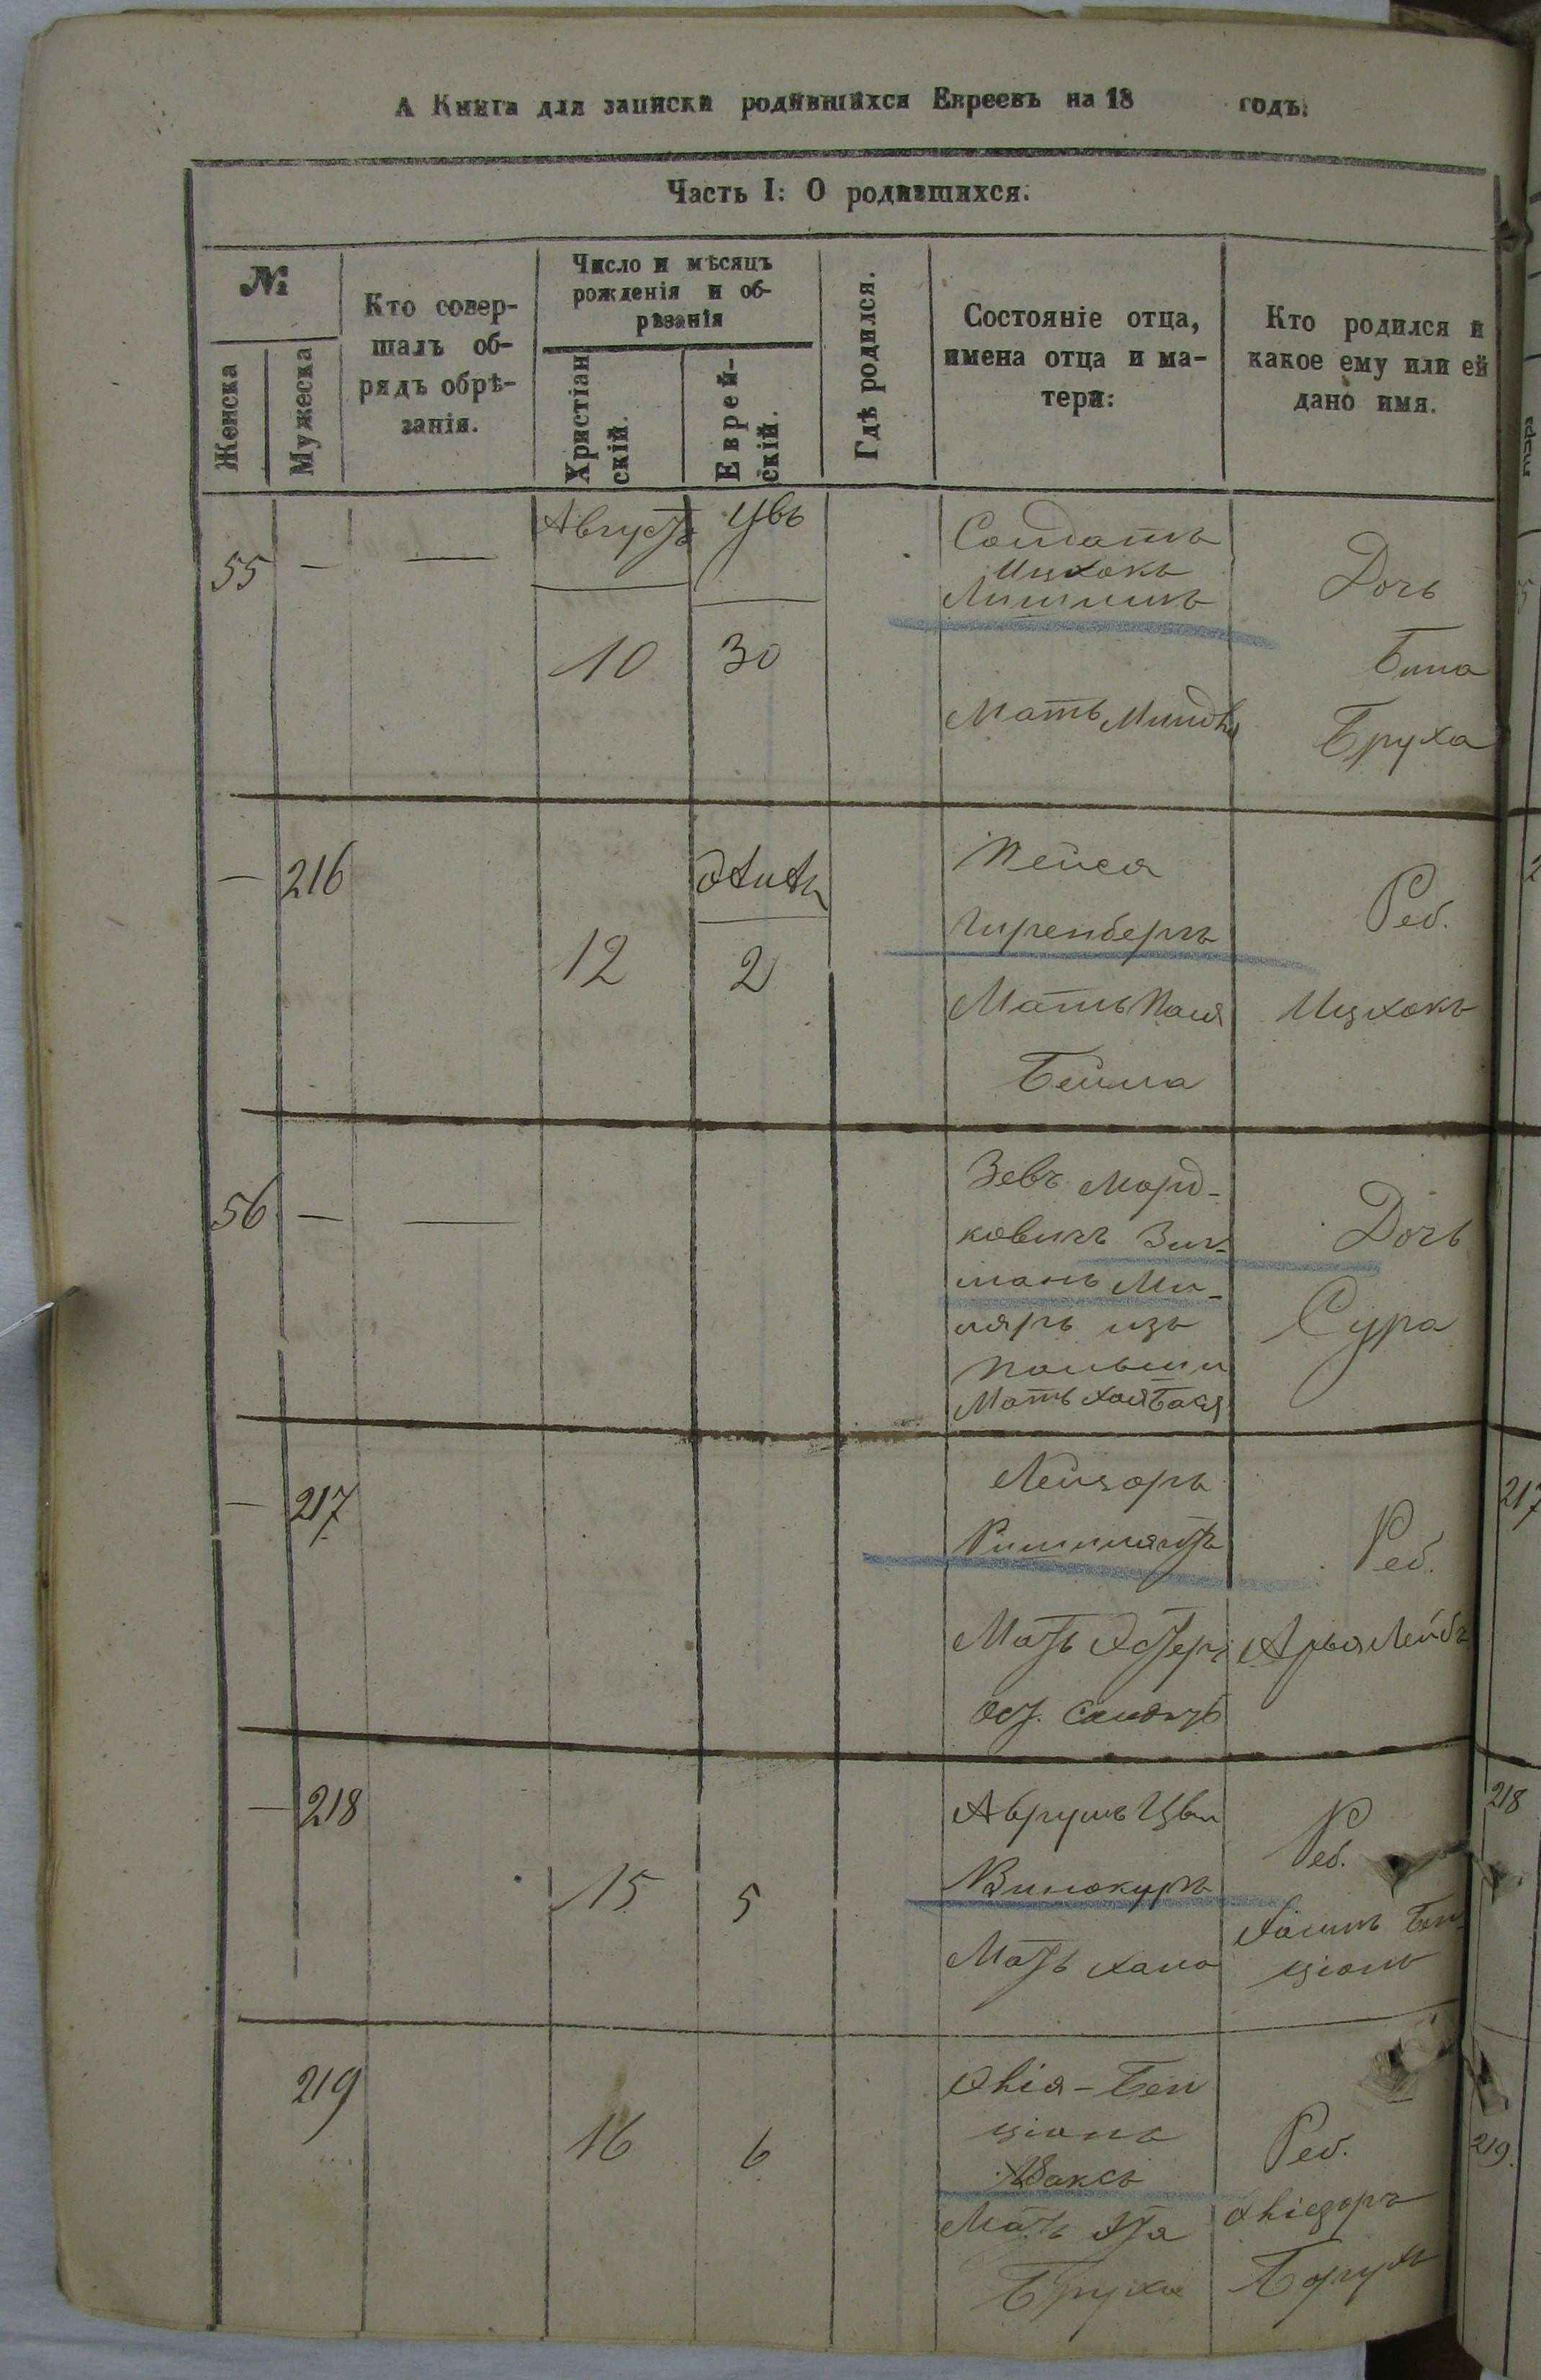 А Книга для записки родившихся Евреевъ на 18 годъ.
Часть I: О родившихся.
№
Женска
Мужеска
Кто совер-
шалъ об-
рядъ обрѣ-
занія.
Число и мѣсяцъ
рожденія и об-
рѣзанія
Христіан
скій.
Еврей-
скій.
Гдѣ родился.
Состояніе отца,
имена отца и ма-
тери:
Кто родился и
какое ему или ей
дано имя.
55 — —
Августъ
10
30
Солдатъ
Ицхокъ
Мать
Дочь
Бина
Бруха
— 216
12
2
Пейся
Гиренбергъ
Мать Пая
Бейла
Реб.
Ицхокъ
56 — —
Зевъ Морд-
ковичъ Зил-
манъ
изъ
Польши
Мать Хая Бася
Дочь
Сура
— 217
Лейзоръ
Мать Эстеръ
Реб.
Арья Лейбъ
— 218
15
5
Аврумъ Цви
Винокуръ
Мать Хана
Реб.
Хаимъ Бен-
ціонъ
219
16
6
Бен
ціонъ
Ваксъ
Мать Эта
Бруха
Реб.
Борухъ
217
218
219.